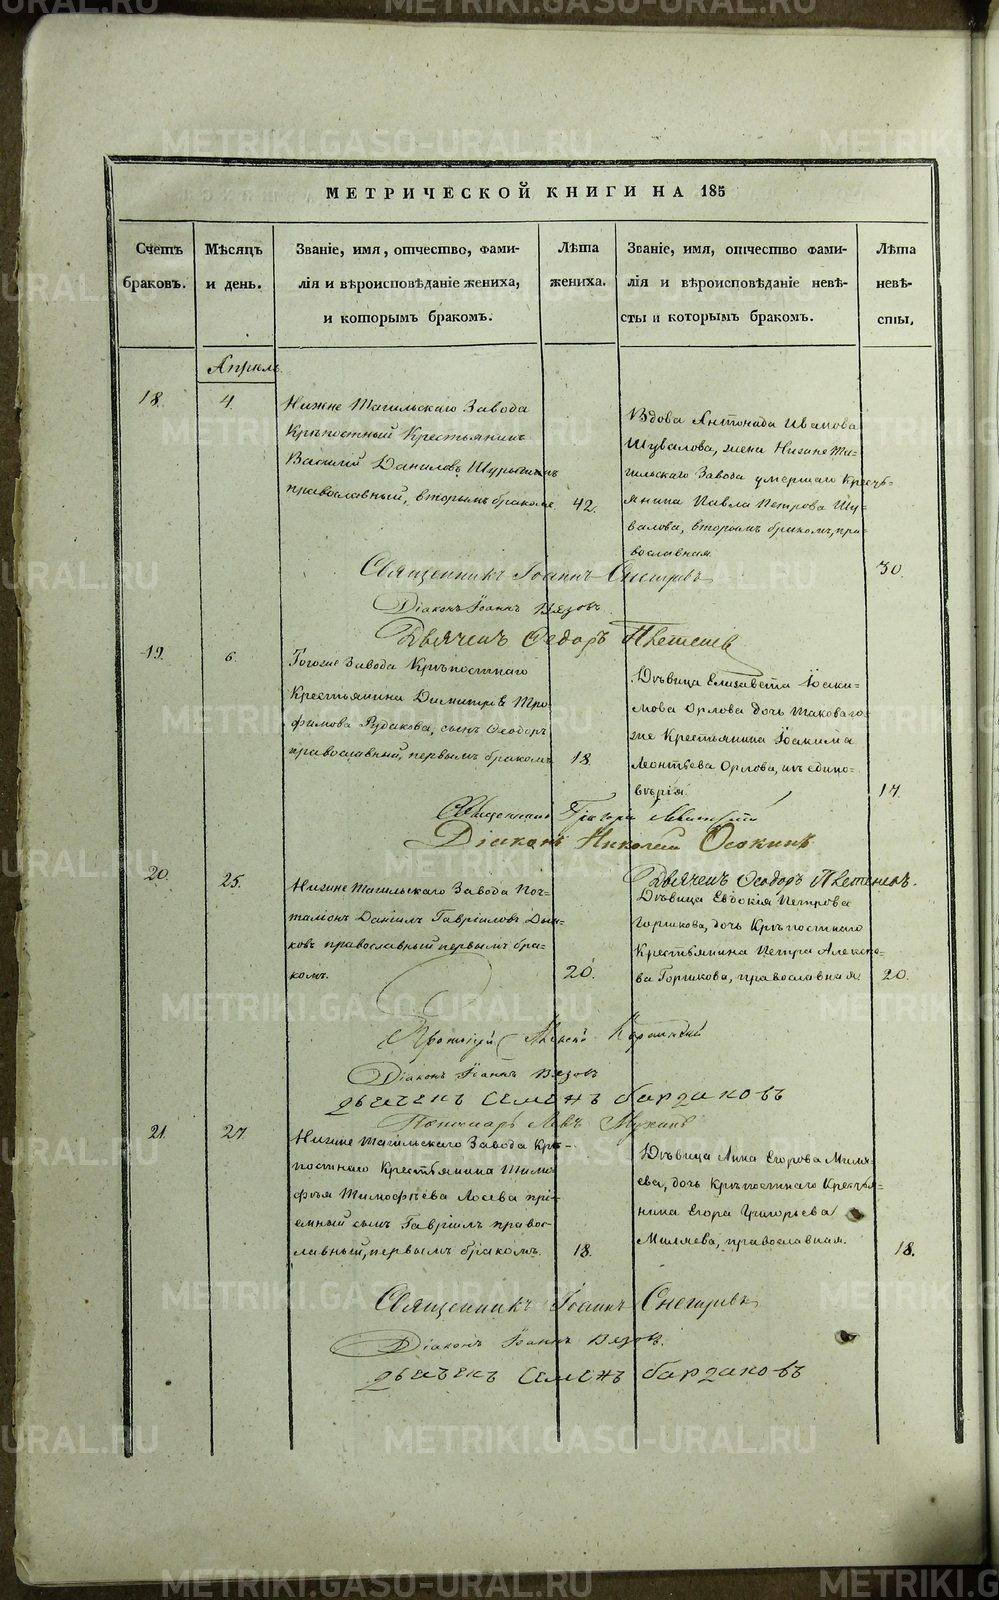 МЕТРИЧЕСКОЙ КНИГИ НА 185
Счетъ браковъ.
Мѣсяцъ и день.
Званіе, имя, отчество, фами-
лія и вѣроисповѣданіе жениха,
и которымъ бракомъ.
Лѣта жениха.
Званіе, имя, отчество фами-
лія и вѣроисповѣданіе невѣ-
сты и которымъ бракомъ.
Лѣта невѣ-
сты.
Апрель
18.
4.
Нижне Тагильскаго Завода
Крѣпостный Крестьянинъ
Василий Даниловъ
православный, вторымъ бракомъ
42.
Вдова Антонида Иванова
Шувалова, жена Нижне Та-
гильскаго Завода умершаго Кресть-
янина Павла Петрова Шу-
валова, вторымъ бракомъ, пра-
вославная
30.
Священникъ Іоаннъ Снегиревъ
Діаконъ Іоаннъ Вязовъ
Дьячекъ Ѳедоръ
19.
6.
Тогоже Завода Крѣпостнаго
Крестьянина Димитрія Тро-
фимова Рудакова, сынъ Ѳеодоръ
православный, первымъ бракомъ
18.
Дѣвица Елизавета Іоаки-
мова Орлова дочь таковаго
же Крестьянина Іоакима
Леонтьева Орлова, въ едино-
вѣріи.
17.
Священникъ Григорій
Діаконъ Николай Осокинъ
Дьячекъ Ѳеодоръ
20.
25.
Нижне Тагильскаго Завода Поч-
таліонъ Даніилъ Гавріиловъ Дын-
ковъ православный первымъ бра-
комъ.
20.
Дѣвица Евдокія Петрова
Горшкова, дочь Крѣпостнаго
Крестьянина Петра Алексѣе-
ва Горшкова, православная.
20.
Протоіерей
Діаконъ Іоаннъ Вязовъ
дьячекъ Семенъ бардаковъ
Пономарь Левъ
21.
27.
Нижне Тагильскаго Завода Крѣ-
постнаго Крестьянина Тимо-
фѣя Тимофѣева Лосева прі-
емный сынъ Гавріилъ правос-
лавный, первымъ бракомъ.
18.
Дѣвица Анна Егорова Миля-
ева, дочь Крѣпостнаго Крестья-
нина Егора Григорьева
Миляева, православная.
18.
Священникъ Іоаннъ Снегиревъ
Діаконъ Іоаннъ Вязовъ.
дьячекъ Семенъ бардаковъ
METRIKI.GASO-URAL.RU